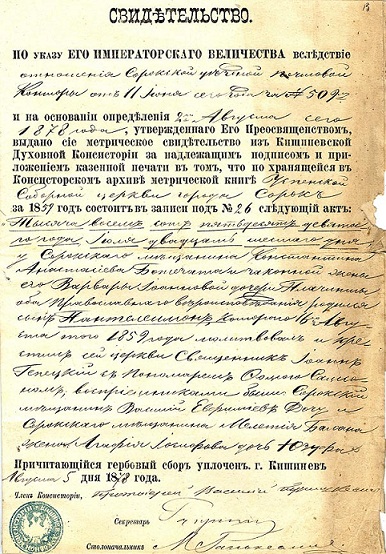 13
СВИДѢТЕЛЬСТВО.
ПО УКАЗУ ЕГО ИМПЕРАТОРСКАГО ВЕЛИЧЕСТВА вслѣдствіе
отношенія Сорокской уѣздной почтовой
Конторы отъ 11 Іюня сего года за № 509
и на основаніи опредѣленія 2 Августа сего
1878 года, утвержденнаго Его Преосвященствомъ,
выдано сіе метрическое свидѣтельство изъ Кишиневской
Духовной Консисторіи за надлежащимъ подписомъ и при-
ложеніемъ казенной печати въ томъ, что по хранящейся въ
Консисторскомъ архивѣ метрической книгѣ Успенской
Соборной церкви города Сорокъ
за 1859 годъ состоитъ въ записи подъ № 26 слѣдующій актъ:
Тысяча восемь сотъ пятьдесятъ девята-
го года Іюля двадцать шестаго дня
у Сорокскаго мѣщанина Константина
Анастасіева и законной жены
его Варвары Іоанновой дочери
оба Православнаго родился
сынъ Пантелеимонъ, котораго 16 Авгу-
ста того 1859 года молитвовалъ и кре-
стилъ сей церкви Священникъ Іоаннъ
Гепецкій съ Пономаремъ
воспріемниками были: Сорокскій
мѣщанинъ Василій и
Сорокскаго мѣщанина Мелетія
жена Агафія дочь
Причитающійся гербовый сборъ уплоченъ. г. Кишиневъ
Августа 5 дня 1878 года.
Членъ Консисторіи, Протоіерей Василій
Секретарь
Столоначальникъ